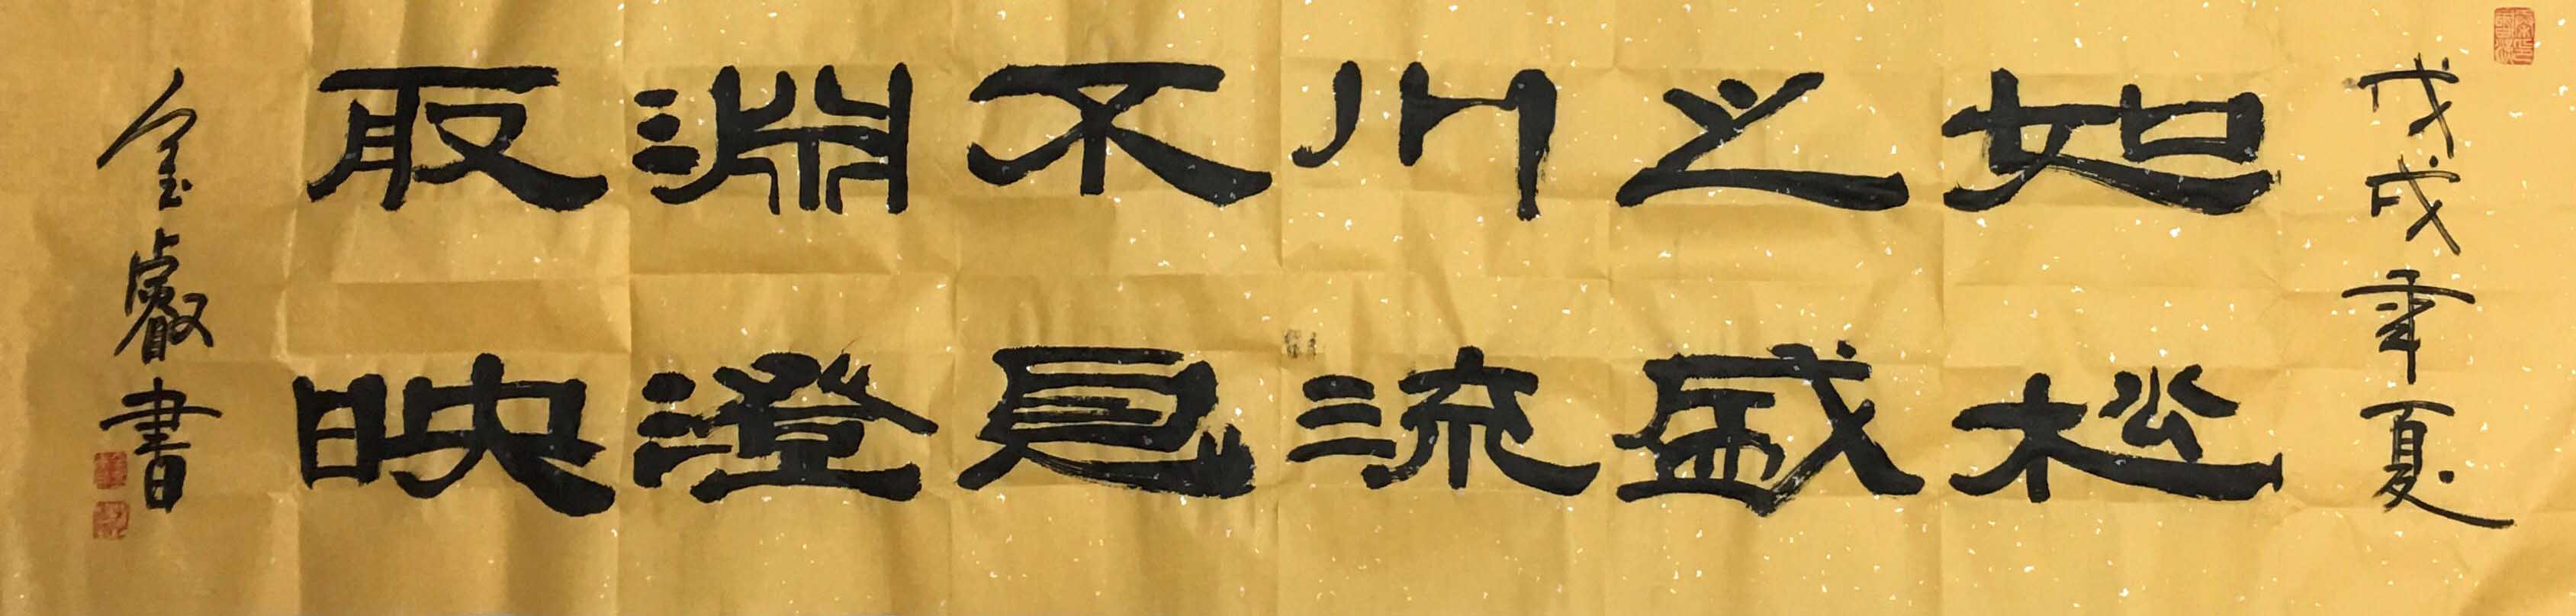 戊戌年夏
如松
之盛
川流
不息
淵澄
取映
金叡書